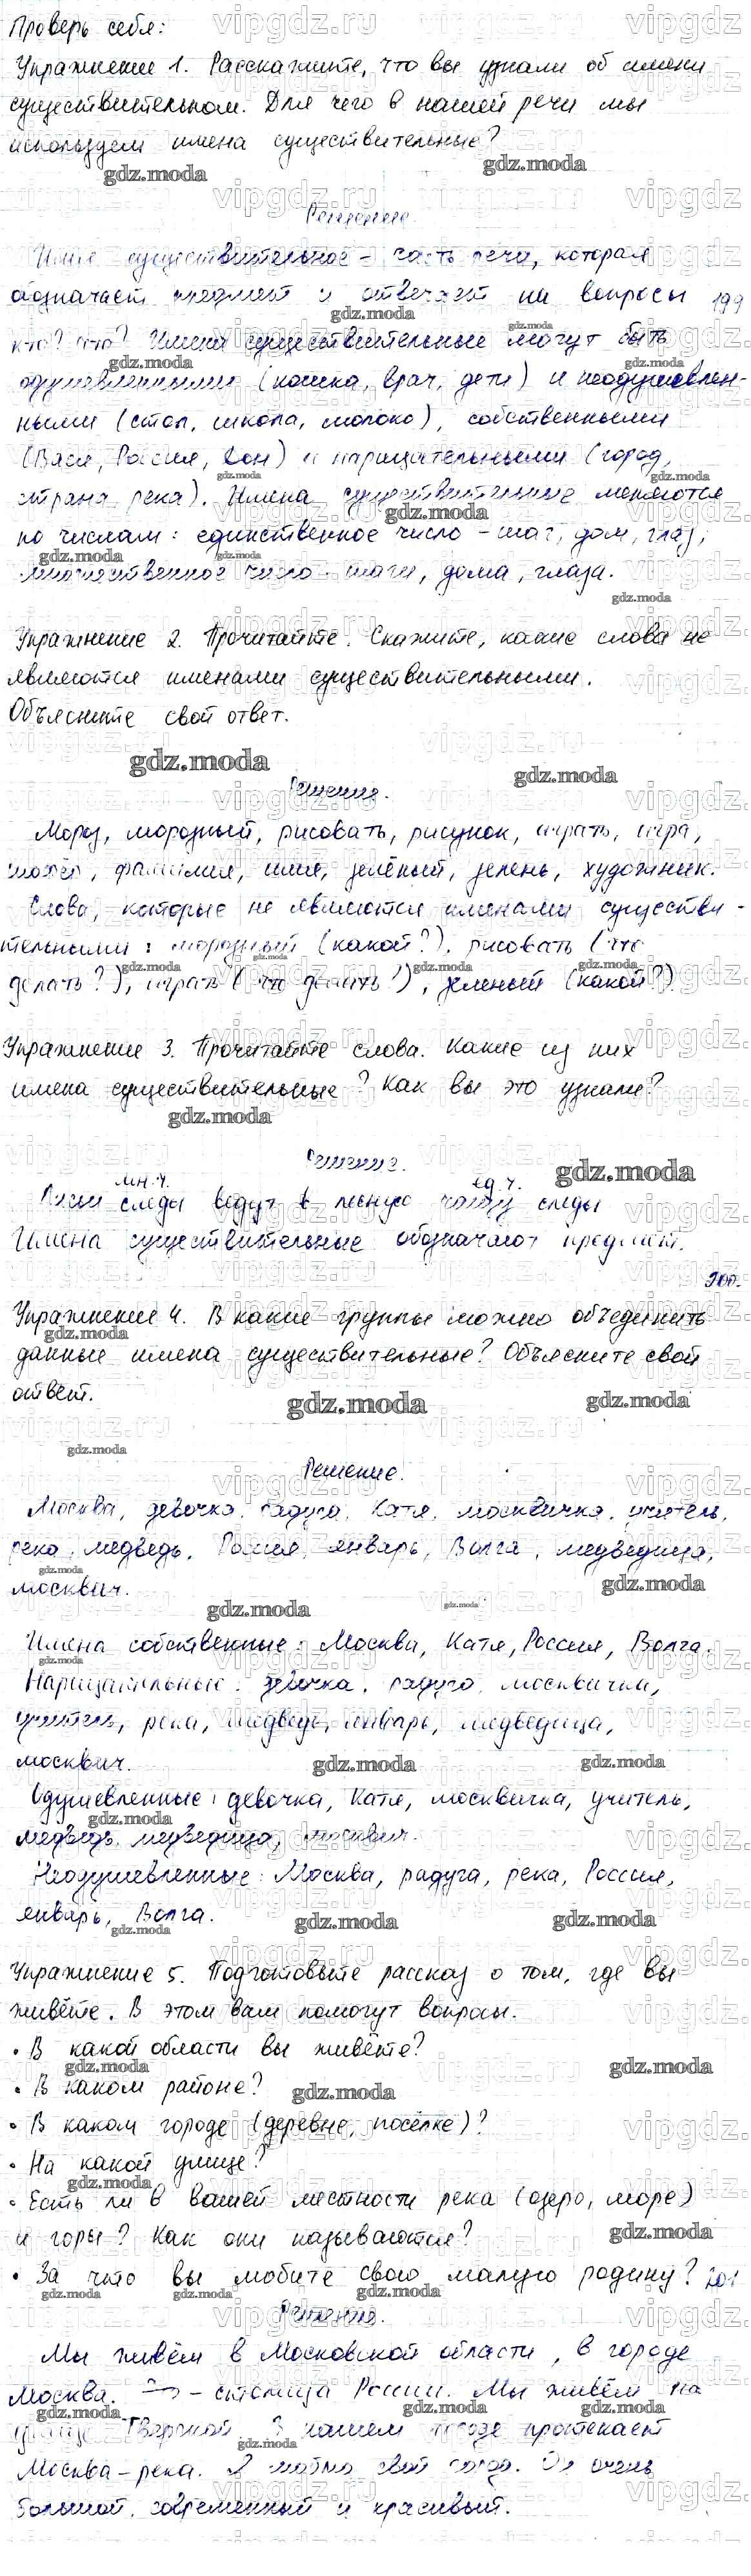 Проверь себя:
Упражнение 1. Расскажите, что вы узнали об имени
существительном. Для чего в нашей речи мы
используем имена существительные?
Решение
Имя существительное - часть речи, которая
обозначает предмет и отвечает на вопросы 199
кто? что? Имена существительные могут быть
одушевленными (кошка, врач, дети) и неодушевлен-
ными (стол, школа, молоко), собственными
(Вася, Россия, Дон) и нарицательными (город,
страна, река). Имена существительные меняются
по числам: единственное число - шаг, дом, глаз;
множественное число - шаги, дома, глаза.
Упражнение 2. Прочитайте. Скажите, какие слова не
являются именами существительными.
Объясните свой ответ.
Решение.
Мороз, морозный, рисовать, рисунок, играть, игра,
шофёр, фамилия, имя, зелёный, зелень, художник.
Слова, которые не являются именами существи-
тельными: морозный (какой?), рисовать (что
делать?), играть (что делать?), зеленый (какой?)
Упражнение 3. Прочитайте слова. Какие из них
имена существительные? Как вы это узнали?
Решение.
мн.ч. ед.ч.
следы ведут в лесную чащу следы
Имена существительные обозначают предмет.
200.
Упражнение 4. В какие группы можно объединить
данные имена существительные? Объясните свой
ответ.
Решение.
Москва, девочка, радуга, Катя, москвичка, учитель,
река, медведь, Россия, январь, Волга, медведица,
москвич.
Имена собственные: Москва, Катя, Россия, Волга.
Нарицательные: девочка, радуга, москвичка,
учитель, река, медведь, январь, медведица,
москвич.
Одушевленные: девочка, Катя, москвичка, учитель,
медведь, медведица, москвич.
Неодушевленные: Москва, радуга, река, Россия,
январь, Волга.
Упражнение 5. Подготовьте рассказ о том, где вы
живёте. В этом вам помогут вопросы.
• В какой области вы живёте?
• В каком районе?
• В каком городе (деревне, посёлке)?
• На какой улице?
• Есть ли в вашей местности река (озеро, море)
и горы? Как они называются?
• За что вы любите свою малую родину? 201
Решение.
Мы живём в Московской области, в городе
Москва. Это - столица России. Мы живём на
улице Тверской. В нашем городе протекает
Москва-река. Я люблю свой город. Он очень
большой, современный и красивый.